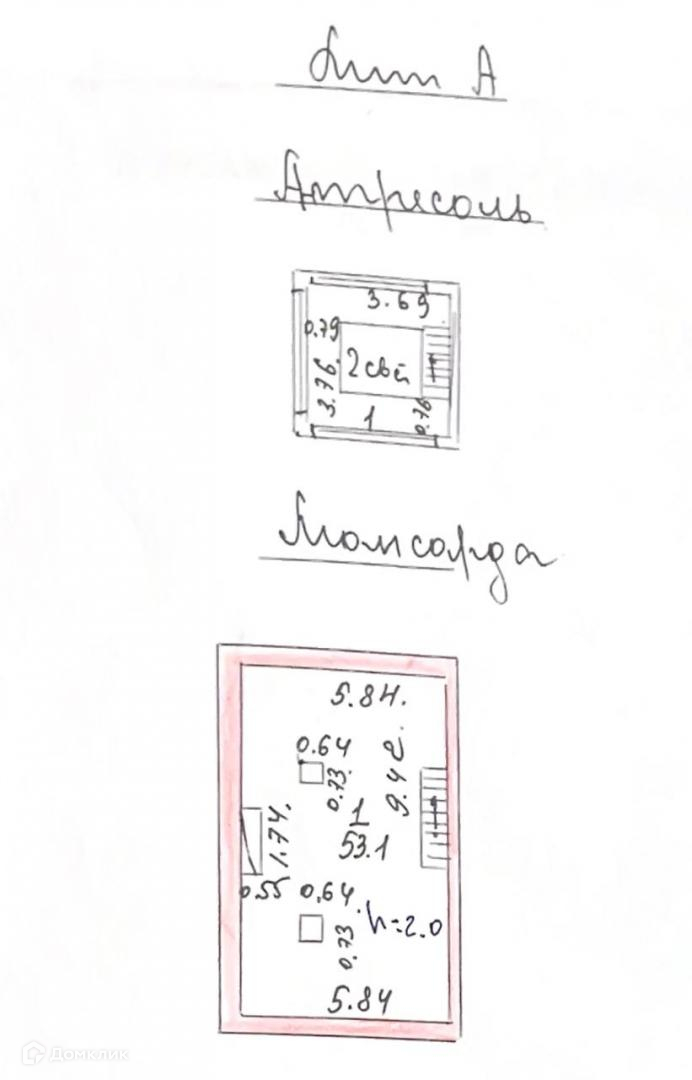 Лит А
Антресоль
3.69
0.79
2 свет
3.76.
1
0.76
Мансарда
5.84.
0.64
0.73.
9.42.
1
53.1
1.74.
0.55
0.64.
h=2.0
0.73
5.84
Домклик